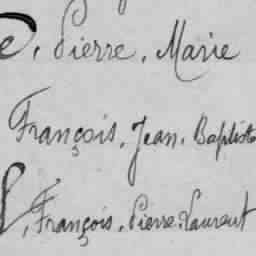 e, Pierre, Marie
François, Jean, Baptiste
L, François, Pierre, Laurent